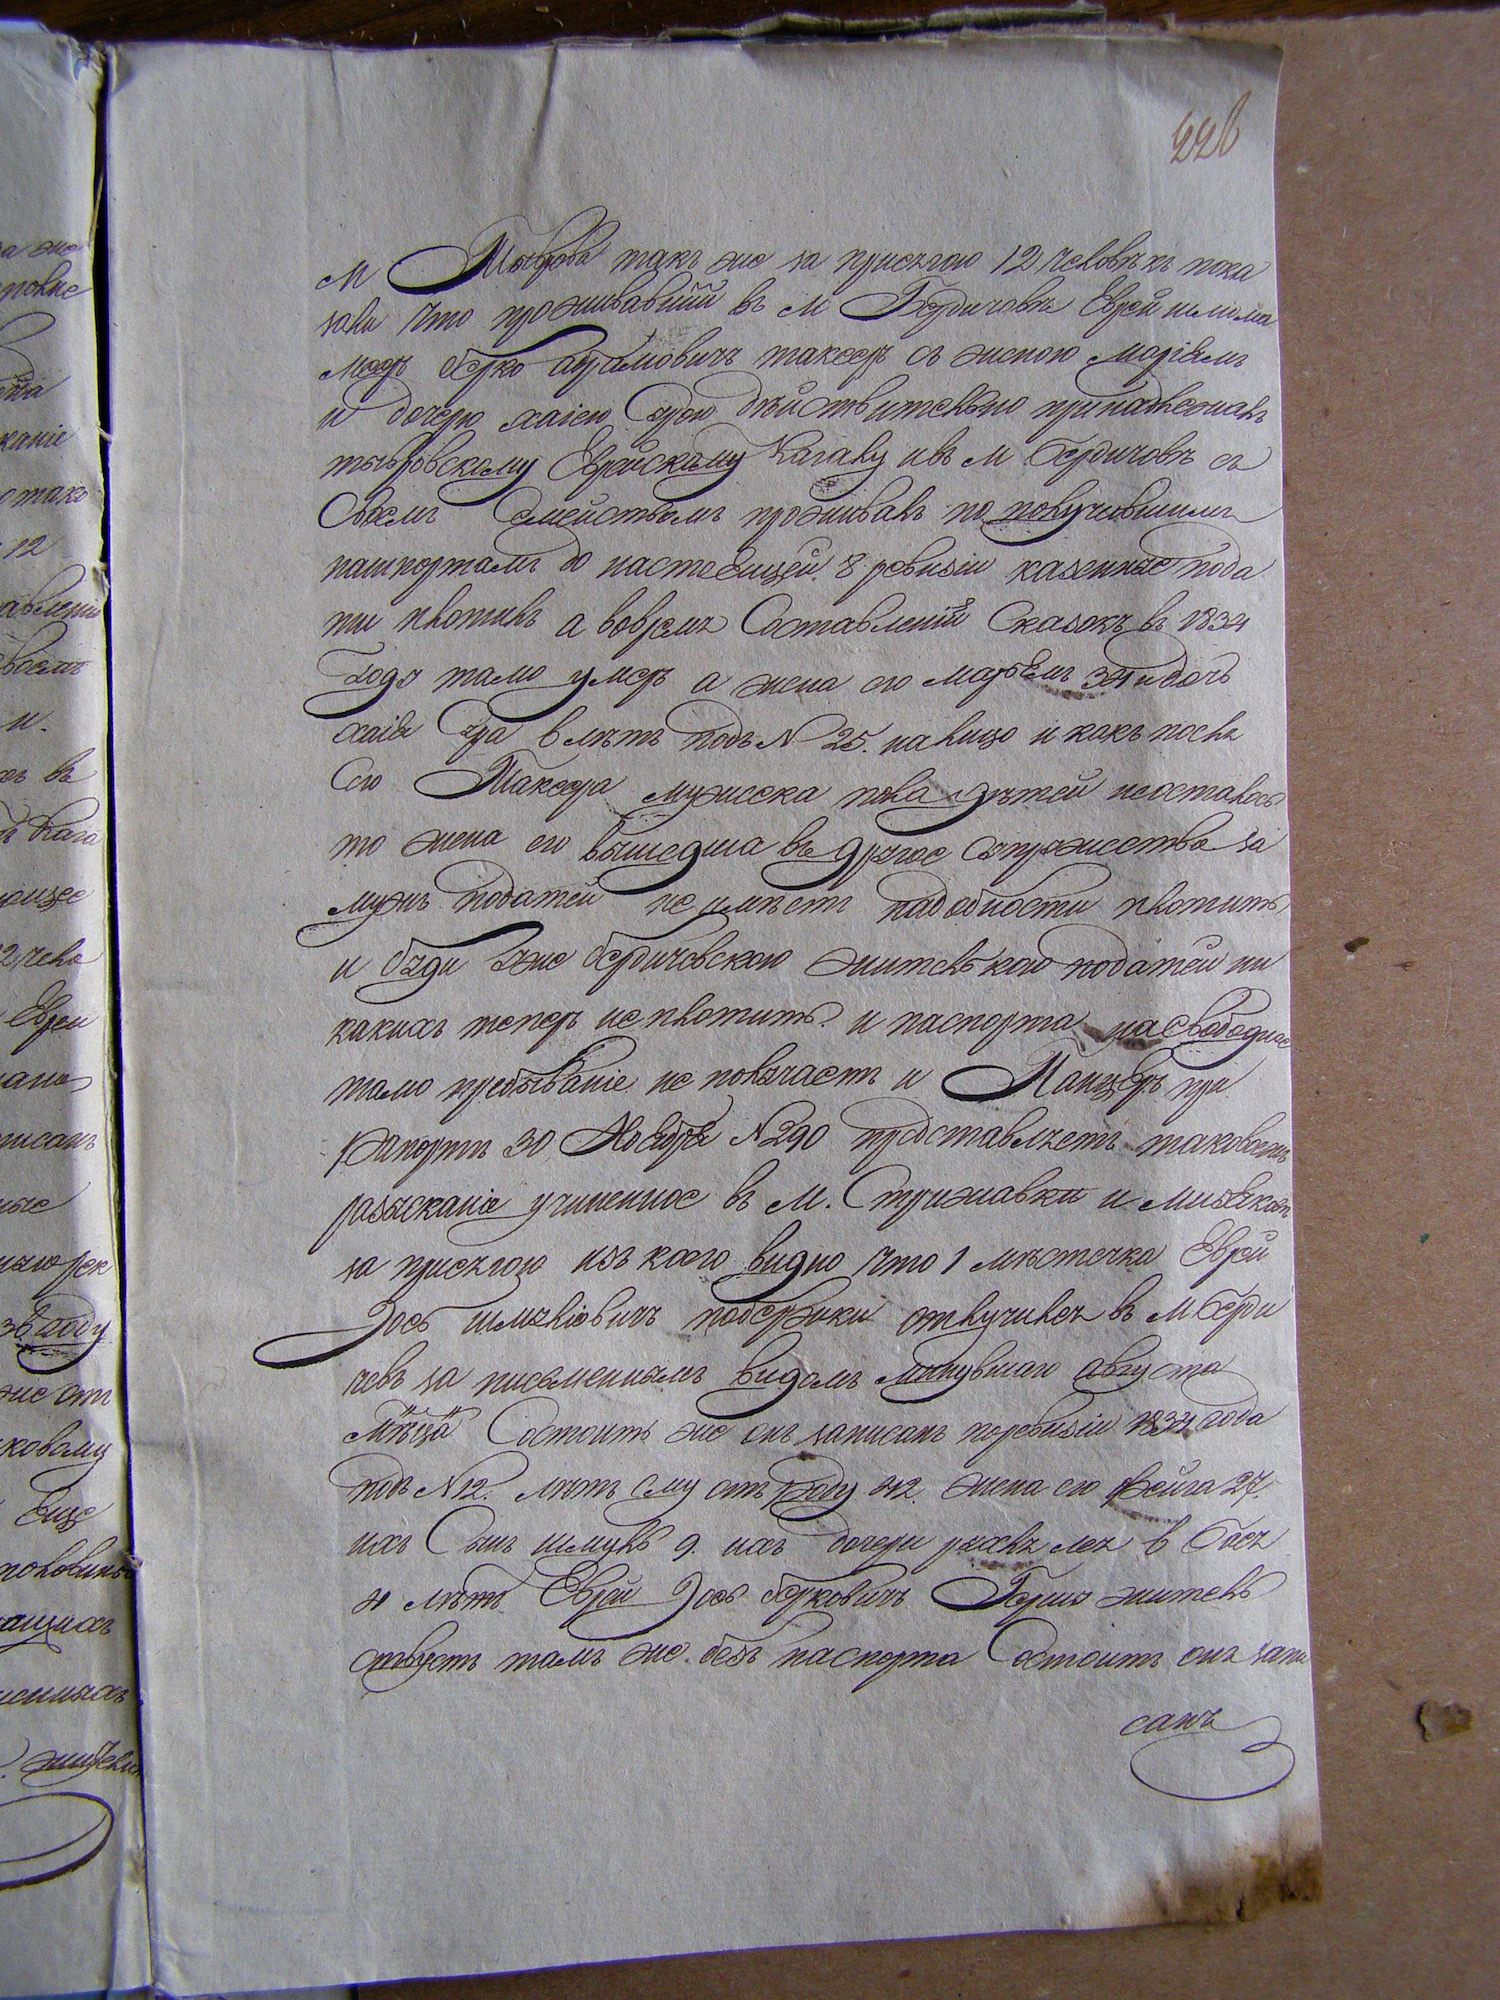 226
М Тыврова такъ же за присягою 12 человѣкъ пока
зали что проживавшій въ М Бердичовѣ Еврей шлiома
Меэръ Берко абрамовичъ таксеръ съ женою Маріемъ
и дочерю хаіею Сурою дѣйствительно принадлежалъ
тывровскому Еврейскому Кагалу ивъ М Бердичовѣ съ
Своемъ Семействомъ проживалъ по получившимъ
пашпортамъ до настоящей 8 ревизіи казенные пода
ти плотилъ а вовремя Составленій Сказокъ въ 1834
Году тамо умеръ а жена его маріемъ 34 и дочь
хаія Сура 6 лѣтъ подъ N 25. на лицо и какъ послѣ
Его Таксера мужеска пола дѣтей неосталось
то жена его вышедша въ другое Супружество за
мужъ податей не имѣетъ надобности плотить
и будучи уже бердичовскою жителькою податей ни
какихъ теперь неплотитъ и паспорта на свободное
тамо пребываніе не получаетъ и Канцеръ при
рапортѣ 30 Ноября N 290 представляетъ таковоежъ
разысканіе учиненное въ М. Стрижавки и Мизякова
за присягою изъ коего видно что 1 мѣстечка Еврей
Іось шмулiовичъ подсрыки отлучился въ М Берди
чевъ за письменнымъ видомъ минувшаго августа
М-ца Состоитъ же онъ записанъ поревизіи 1834 года
подъ N 12. лѣтъ Ему отъ роду 42 жена его фейга 27.
ихъ Сынъ шмуль 9. ихъ дочери рухля лея 6 бася
4 лѣтъ Еврей Іось берковичъ Герша житель
отвустъ тамъ же безъ паспорта Состоитъ онъ запи
санъ